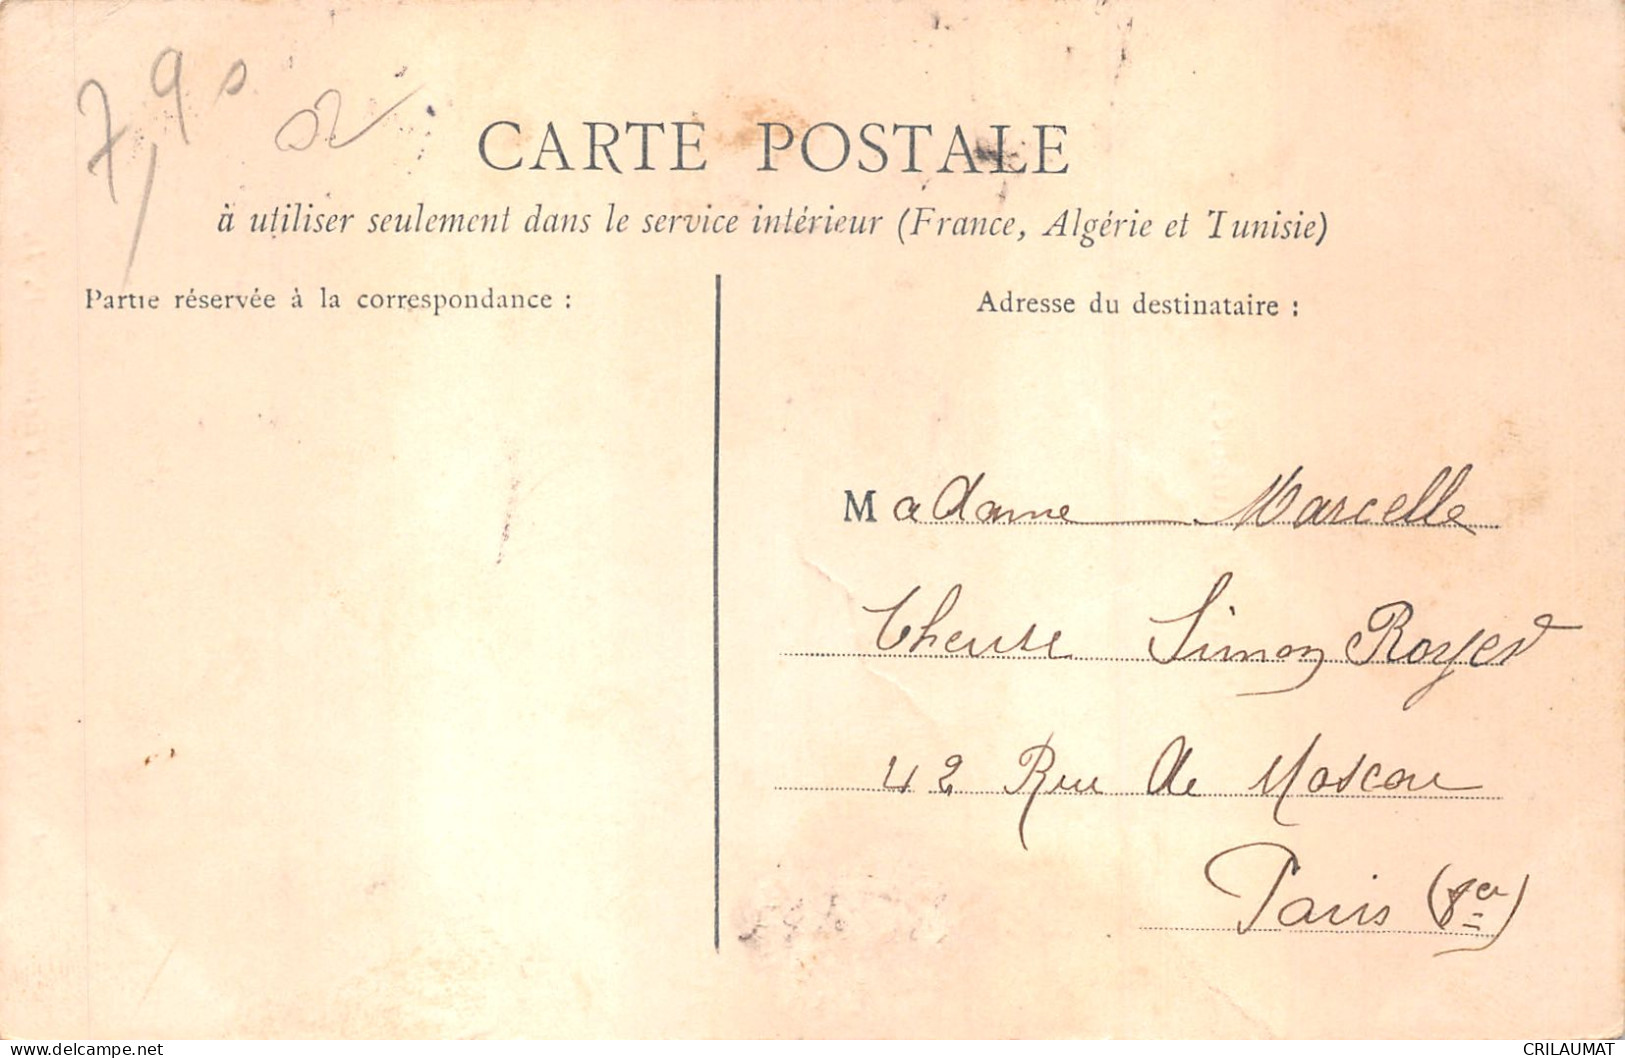 7,90
02
CARTE POSTALE
à utiliser seulement dans le service intérieur (France, Algérie et Tunisie)
Partie réservée à la correspondance :
Adresse du destinataire :
Madame Marcelle
Simon Royer
42 Rue de Moscou
Paris (8e)
delcampe.net
CRILAUMAT